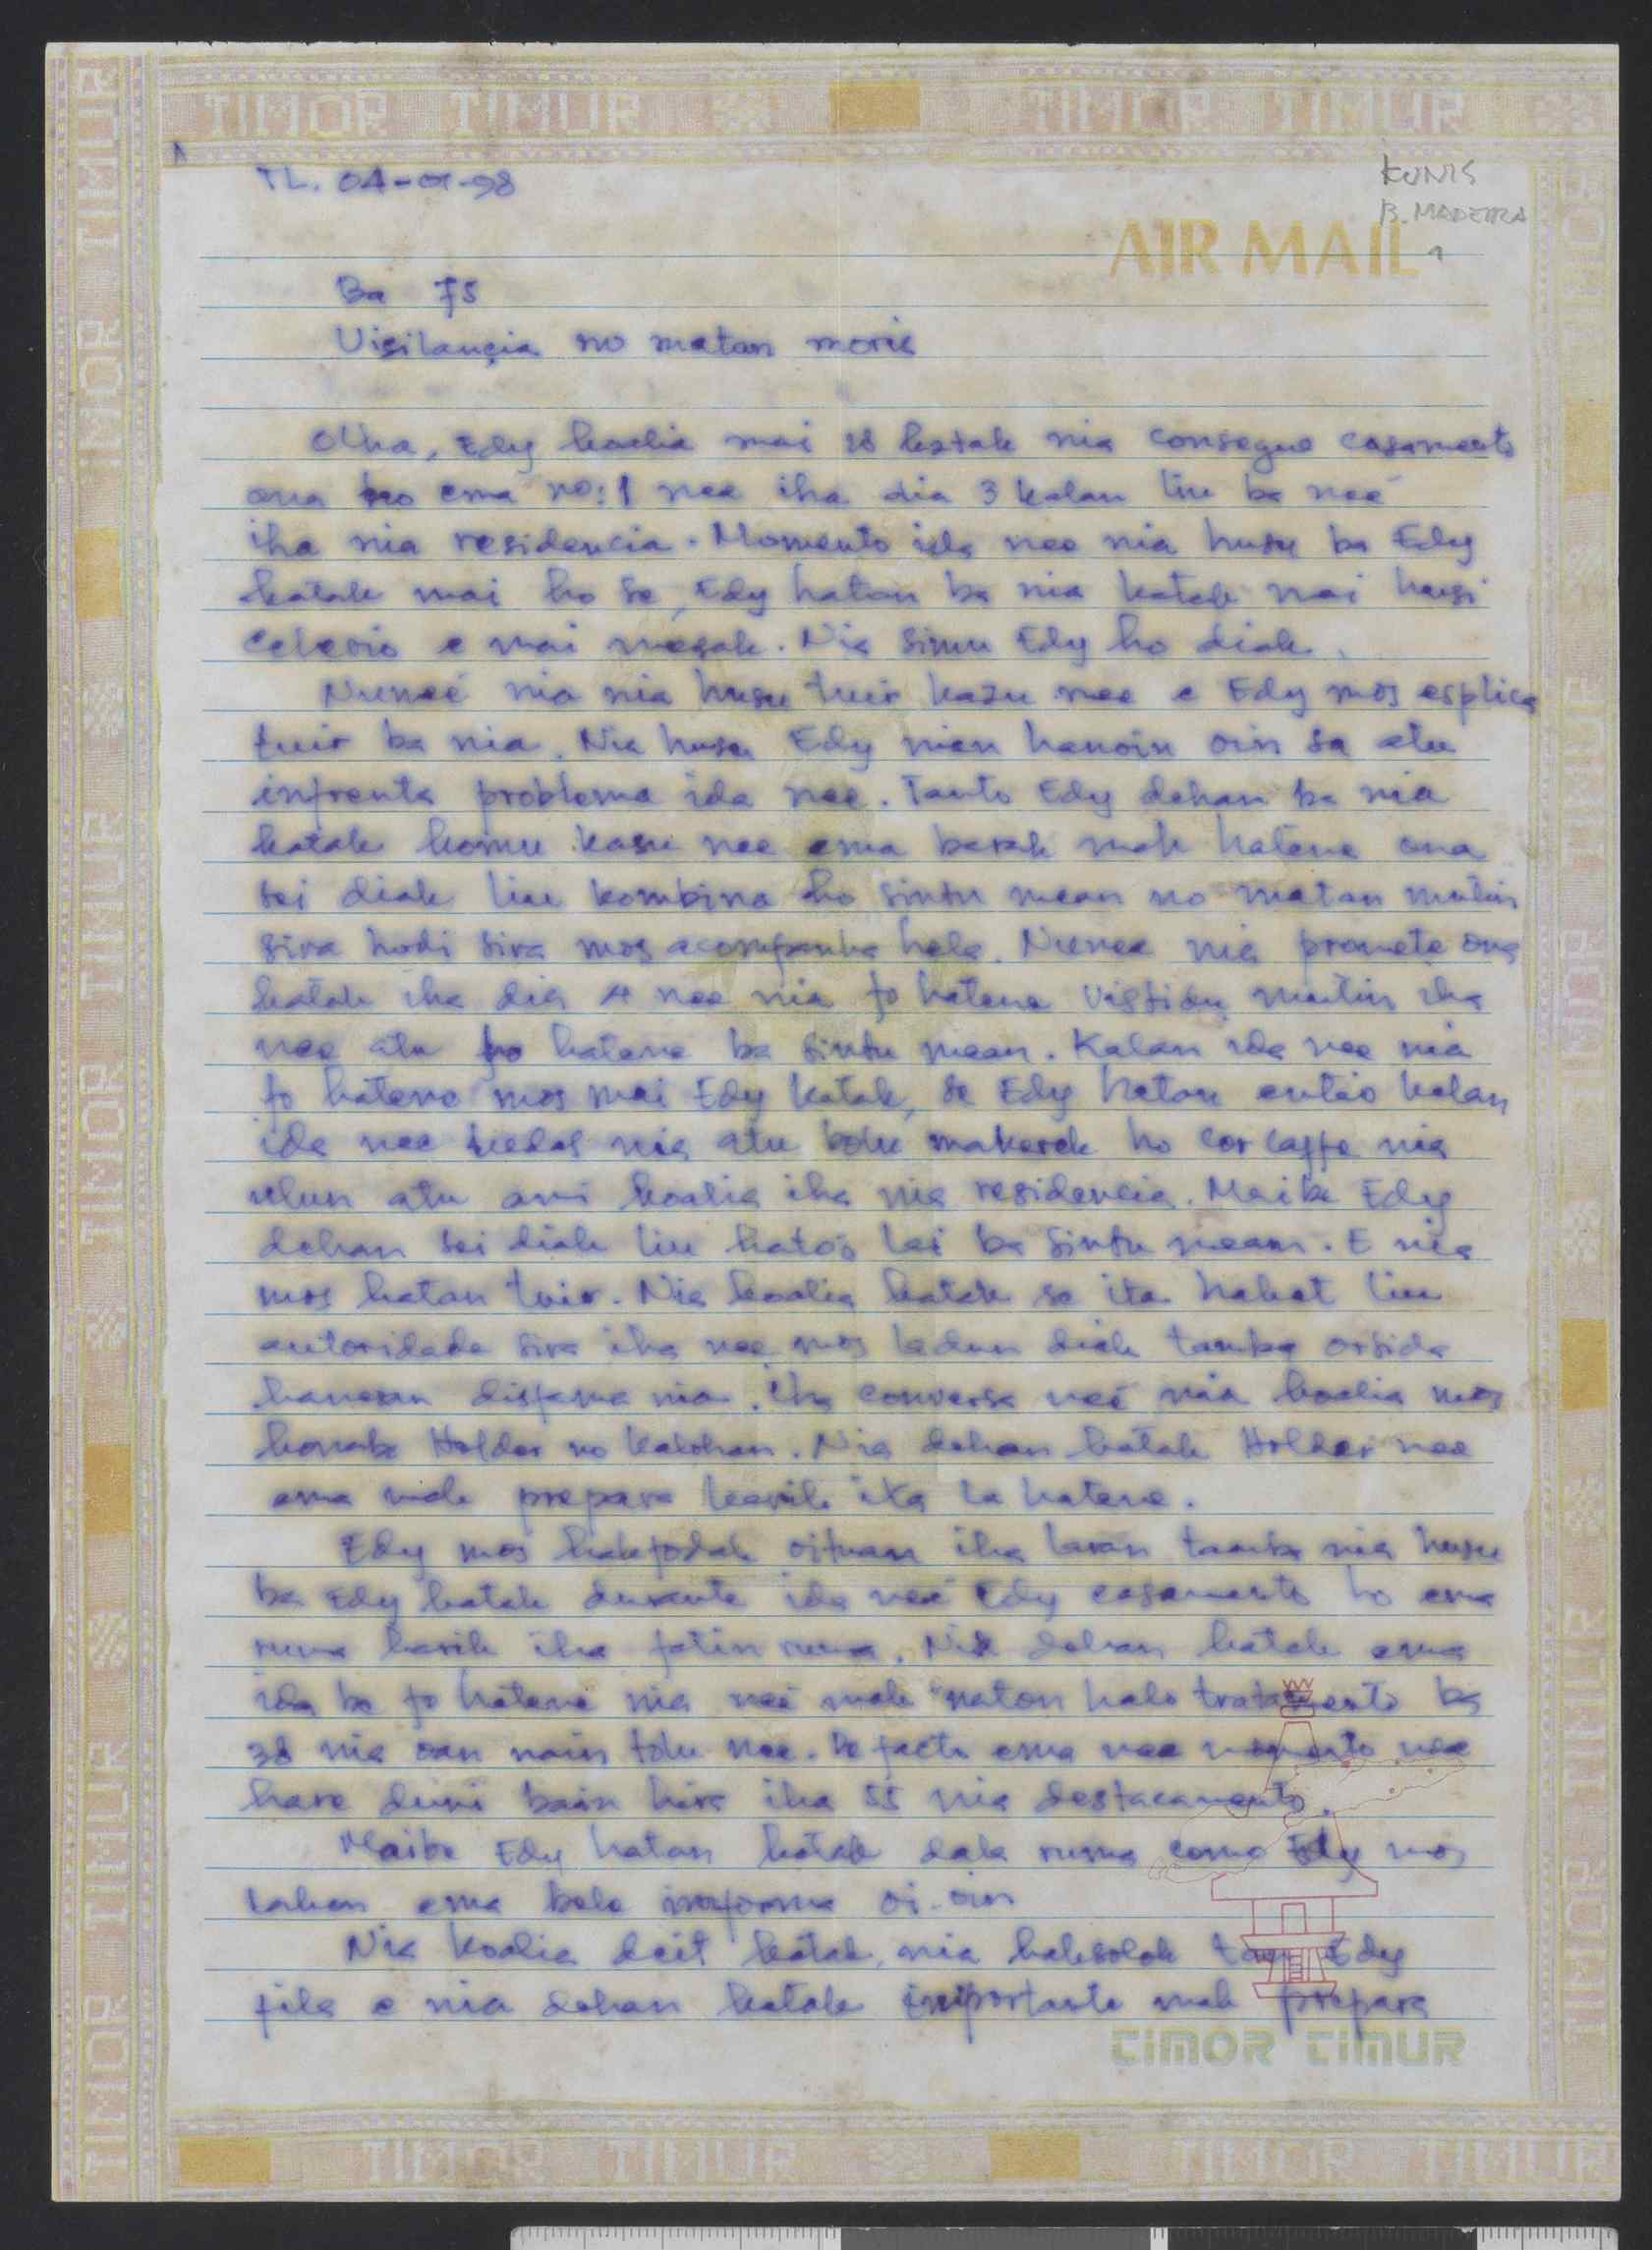 TIMOR TIMUR TIMOR TIMUR
TL. 04-01-98
KUNIS
B. MADEIRA
AIR MAIL
1
Ba 75
Vigilançia no matan moris
Olha, Edy koalia mai 28 katak nia consegue casamento
ona ho ema no: 1 nee iha dia 3 kalan liu ba neé
iha nia residencia. Momento ida nee nia husu ba Edy
katak mai ho se, Edy hatan ba nia katak mai husi
e mai mesak. Nia simu Edy ho diak.
Nuneé nia nia husu tuir kazu nee e Edy mos esplica
tuir ba nia. Nia husu Edy nian hanoin oin sa atu
infrenta problema ida nee. Tanto Edy dehan ba nia
katak komu kasu nee ema barak mak hatene ona
sei diak liu kombina ho sintu mean no matan mutin
sira hodi sira mos acompanha hela. Nunee nia promete ona
katak iha dia 4 nee nia fo hatene vistidu mutin iha
nee atu fo hatene ba sintu mean. Kalan ida nee nia
fo hatene mos mai Edy katak, se Edy hatan então kalan
ida nee kedas nia atu bolu makerek ho nia
ulun atu ami koalia iha nia residencia. Maibe Edy
dehan sei diak liu hato'o lai ba sintu mean. E nia
mos hatan tuir. Nia koalia katak se ita hakat liu
autoridade sira iha nee mos ladun diak tamba orsida
hanesan disfama nia. Iha conversa neé nia koalia mos
konaba Holder no Kalohan. Nia dehan katak Holder nee
ema mak prepara karik ita la hatene.
Edy mos hakfodak oituan iha laran tamba nia husu
ba Edy katak durante ida neé Edy casamento ho ema
ruma karik iha fatin ruma. Nia dehan katak ema
ida ba fo hatene nia neé mak naton halo tratamento ba
38 nia oan nain tolu nee. De facto ema nee momento nee
hare duni bain hira iha 55 nia destacamento.
Maibe Edy hatan katak dala ruma como Edy mos
lahan ema bele informa oi-oin
Nia koalia deit katak, nia haksolok tam Edy
fila e nia dehan katak importante mak prepara
TIMOR TIMUR
TIMOR TIMUR TIMOR TIMUR